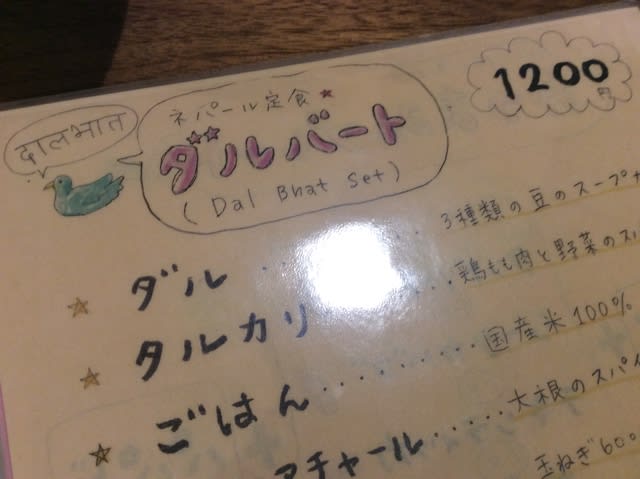 दालभात
ネパール定食
ダルバート
(Dal Bhat Set)
1200円
ダル ・・・ 3種類の豆のスープ
タルカリ ・・・ 鶏もも肉と野菜の
ごはん ・・・・・・・・・ 国産米100%
アチャール ・・・・・ 大根の
玉ねぎ